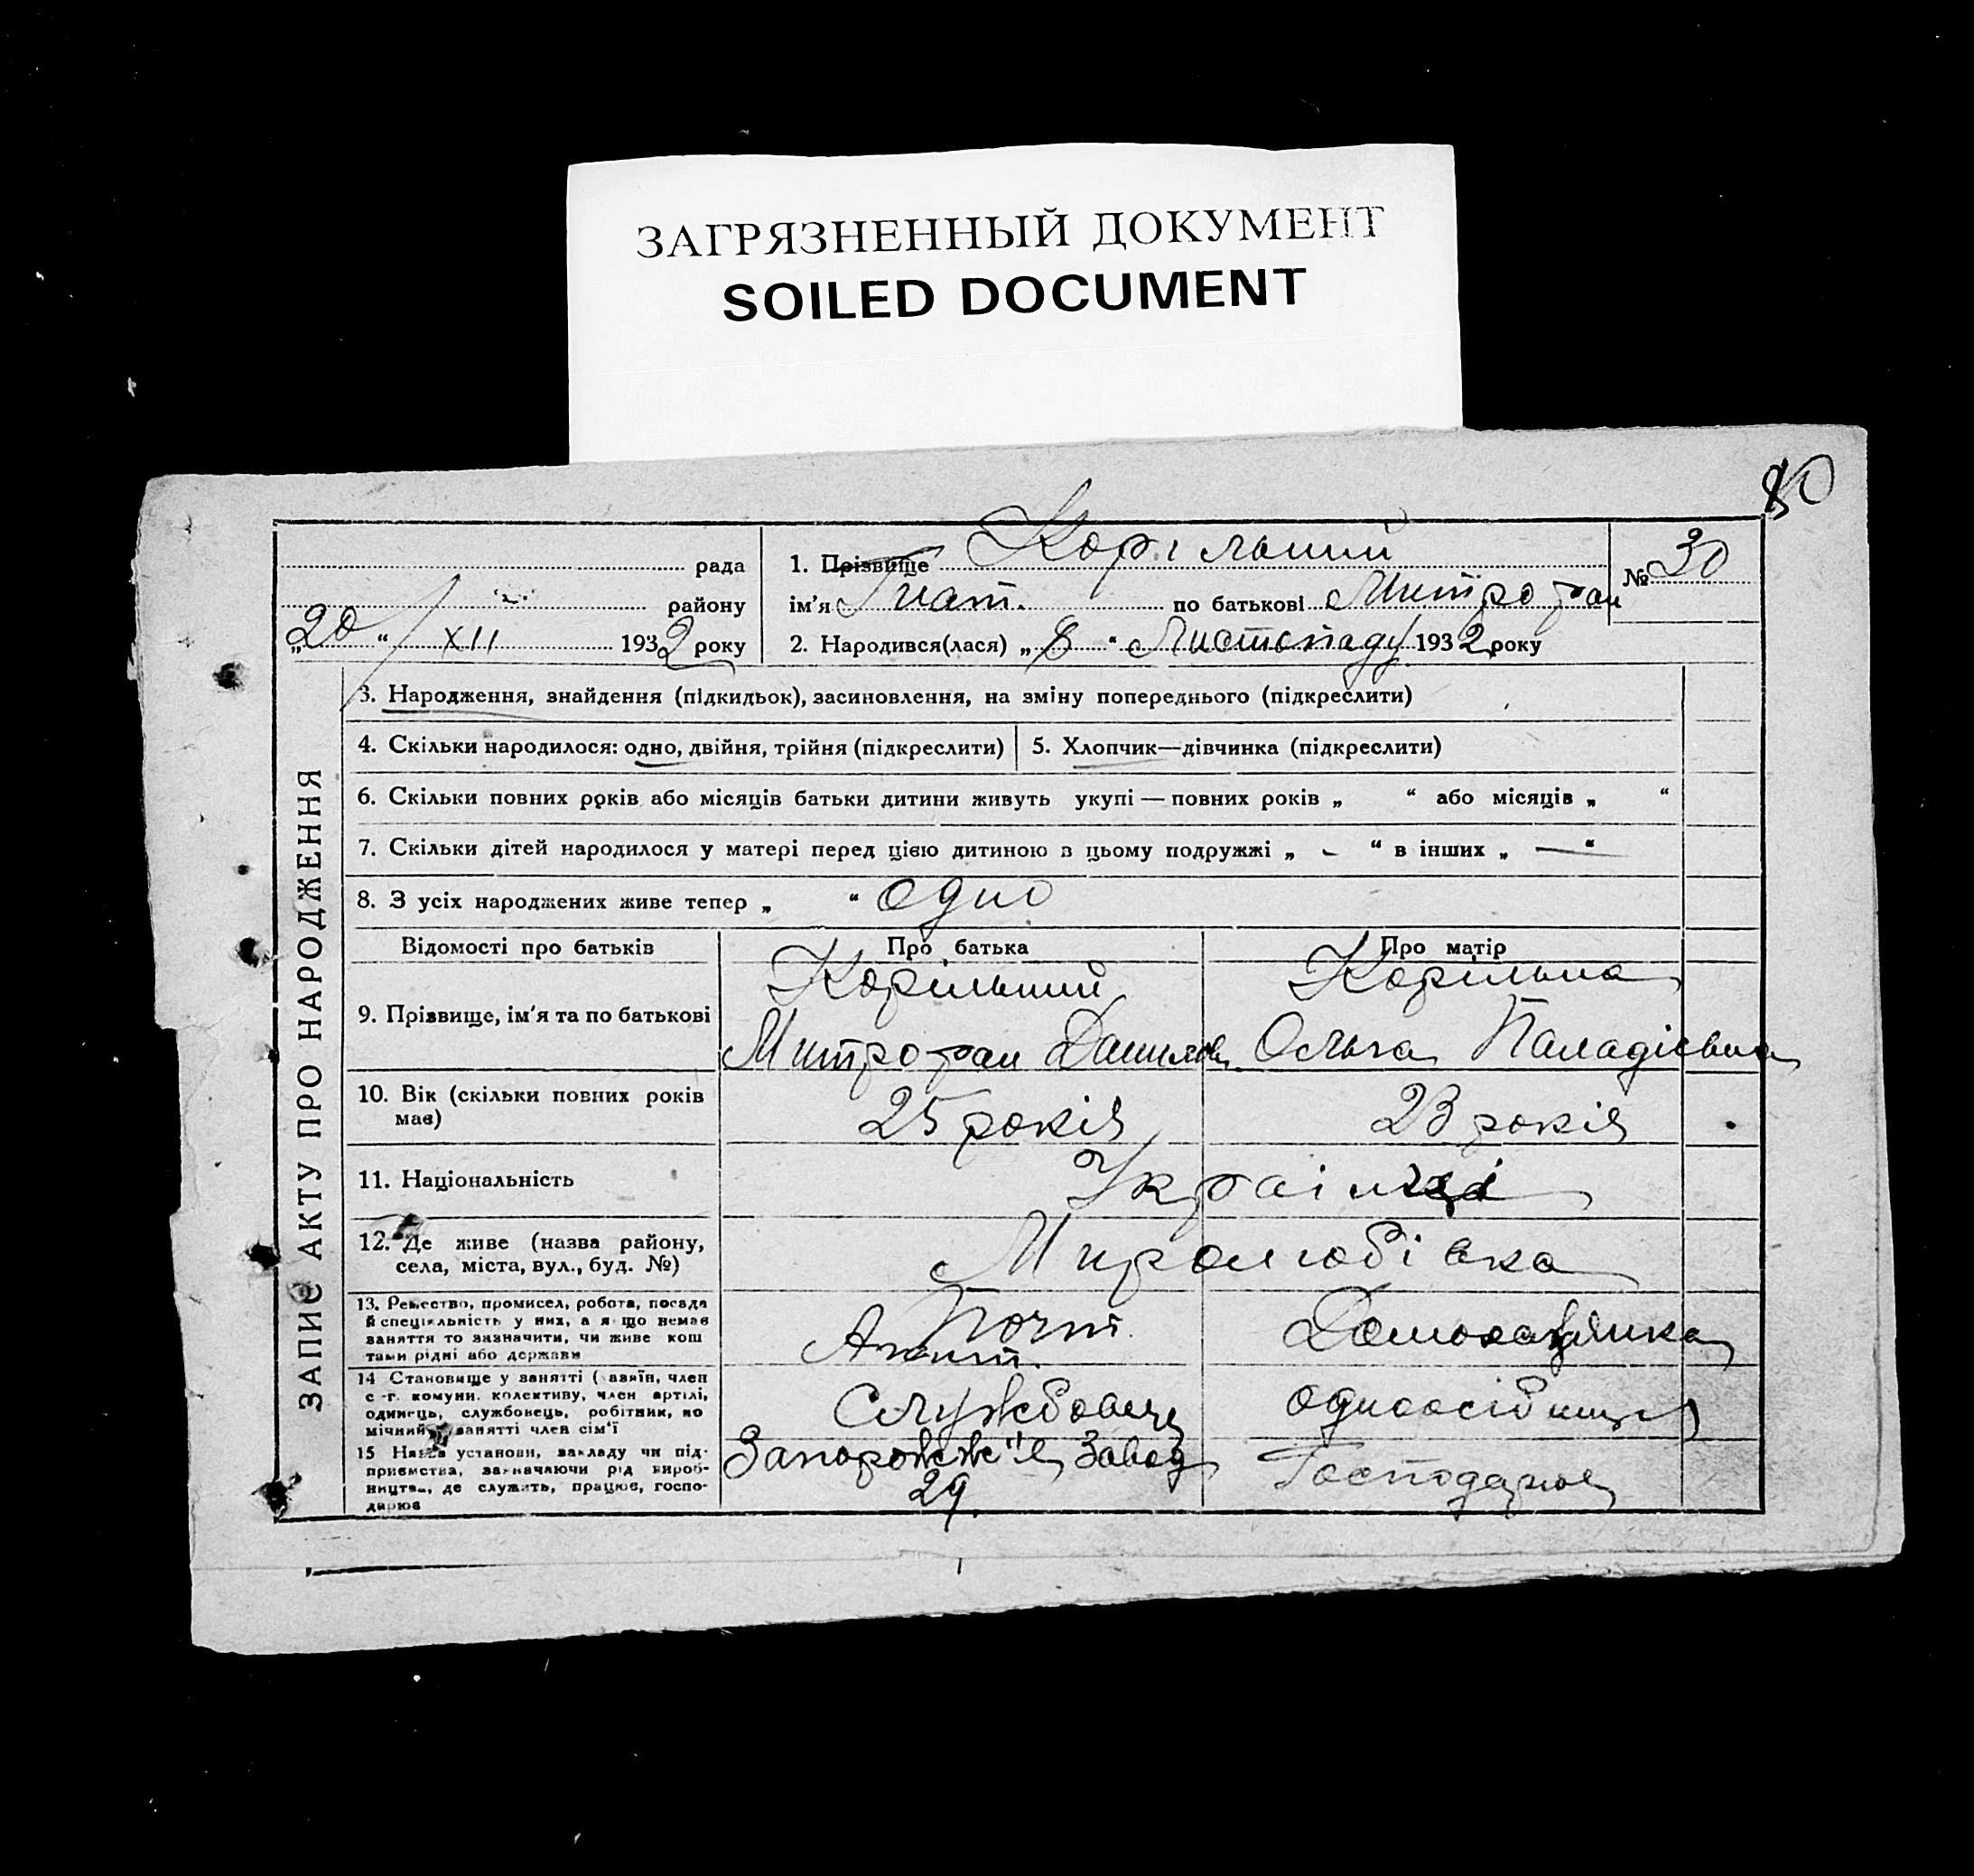 ЗАГРЯЗНЕННЫЙ ДОКУМЕНТ
SOILED DOCUMENT
рада
району
„20“ XII 1932 року
1. Прізвище Корільний
ім'я Гнат. по батькові Митрофан
№ 30
2. Народився(лася) „8“ Листопаду 1932 року
ЗАПИС АКТУ ПРО НАРОДЖЕННЯ
3. Народження, знайдення (підкидьок), засиновлення, на зміну попереднього (підкреслити)
4. Скільки народилося: одно, двійня, трійня (підкреслити)
5. Хлопчик—дівчинка (підкреслити)
6. Скільки повних років або місяців батьки дитини живуть укупі — повних років „ “ або місяців „ “
7. Скільки дітей народилося у матері перед цією дитиною в цьому подружжі „ - “ в інших „ — “
8. З усіх народжених живе тепер „ “ одно
Відомості про батьків
Про батька
Про матір
9. Прізвище, ім'я та по батькові
Корільний
Митрофан Данилов
Корільна
Ольга Паладієвна
10. Вік (скільки повних років
має)
25 років
23 років
11. Національність
Українці
12. Де живе (назва району,
села, міста, вул., буд. №)
Миролюбівка
13. Ремество, промисел, робота, посада
й спеціяльність у них, а якщо немає
заняття то зазначити, чи живе кош
тами рідні або держави
Почт.
Агент.
Домохазяйка
14 Становище у занятті (хазяїн, член
с.-г. комуни, колективу, член артілі,
одинець, службовець, робітник, по
мічний у занятті член сім'ї
Службовець
одноосібниця
15 Назва установи, закладу чи під-
приємства, зазначаючи рід вироб-
ництва, де служить, працює, госпо-
дарює
Запоріжж'я Завод
29.
Господарює